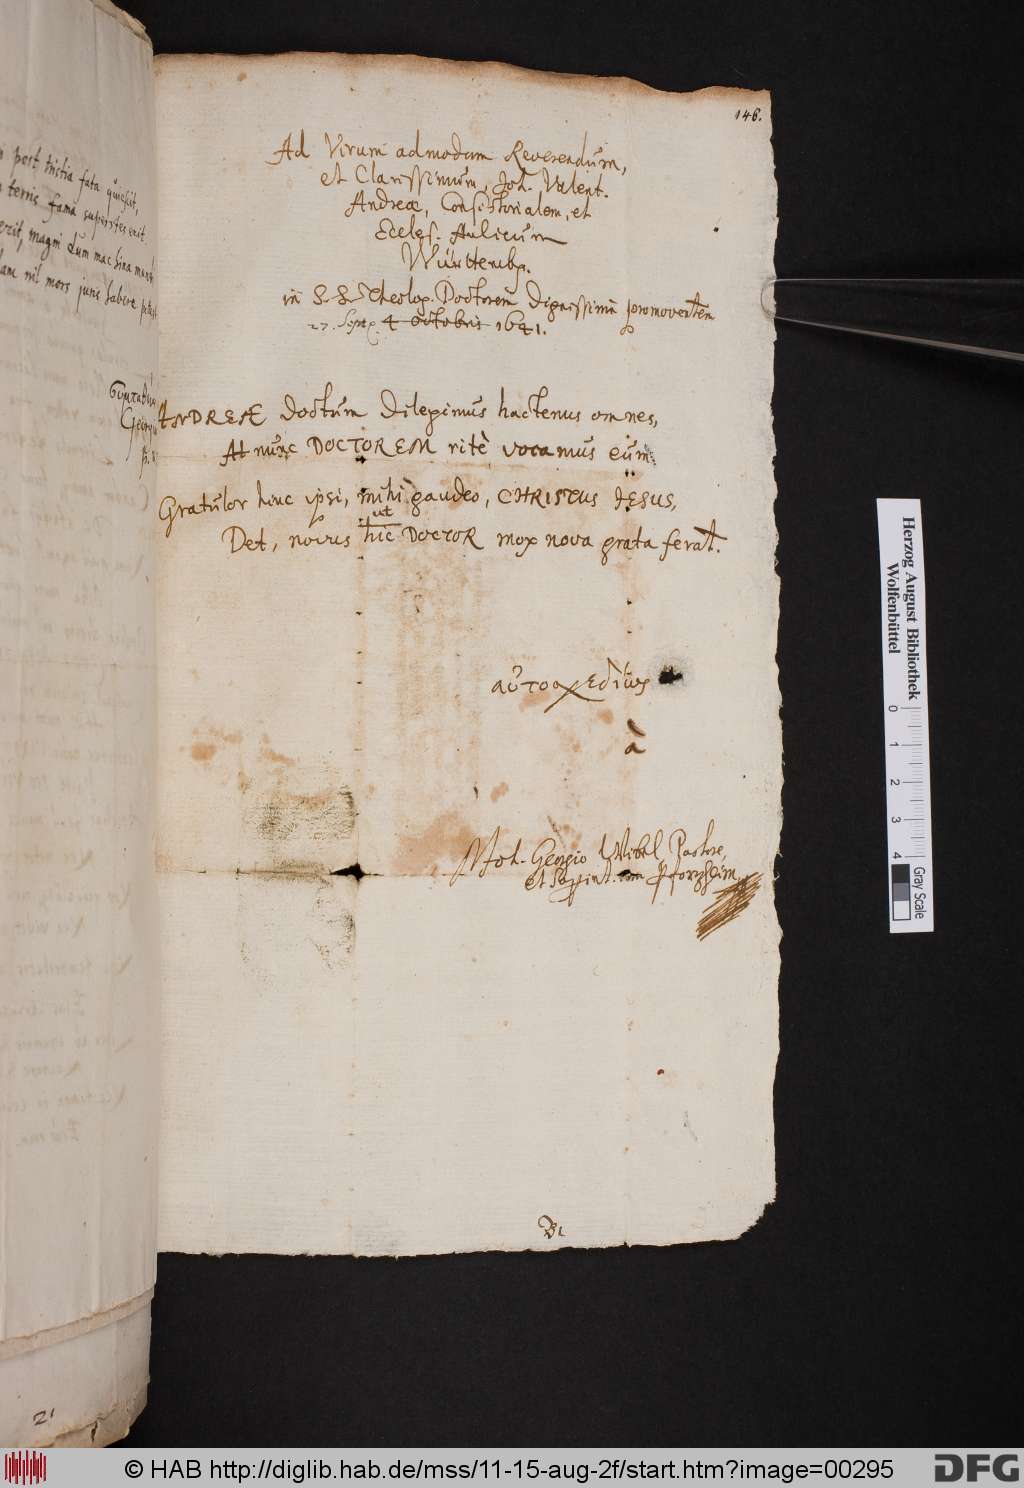 n post tristia fata quiescit,
terris fama superstes erit
erit, magni dum machina mundi
nil mors juris habere potest
146.
Ad Virum admodum Reverendum,
et Clarissimum, Joh. Valent.
Andreæ, Consistorialem, et
Eccles. Aulicum
Würtemb.
in S.S. Theolog. Doctorem Dignissimm promoventem
27. Sept. 4 Octobris 1641.
Georgii
ANDREÆ doctum dilegimus hactenus omnes,
At nunc DOCTOREM ritè vocamus eum.
Gratulor hinc ipsi, mihi gaudeo, CHRISTUS JESUS,
ut
Det, novus hic DOCTOR mox nova grata ferat.
αὐτοσχεδίως
à
M. Joh. Georgio Wibel Pastore,
et Pforzheim
21
Herzog August Bibliothek
Wolfenbüttel
0 1 2 3 4
Gray Scale
© HAB http://diglib.hab.de/mss/11-15-aug-2f/start.htm?image=00295
DFG